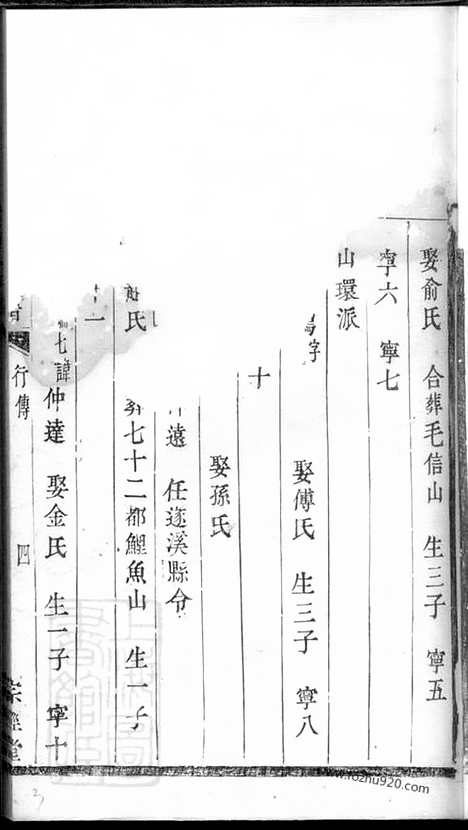 娶俞氏 合葬毛信山 生三子 寧五
寧六 寧七
山環派
字 娶傅氏 生三子 寧八
十
娶孫氏
遠 任遂溪縣令
氏 七十二都鯉魚山 生一子
一
七諱仲達 娶金氏 生一子 寧十
行傳 四
www.fozhu920.com